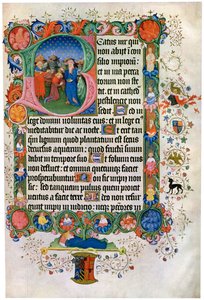 Beatus vir qui
non abijt i con
silio impioru
et in via pecca
torum non ste
tit et i cathed
pestilencie non
sedit Sed in
lege domini voluntas eius et in lege ei
meditabitur die ac nocte Et erit tan
qm lignum quod plantatum est secus
decursus aquarum: quod fructum suum
dabit in tempore suo Et folium eius
non defluet: et omnia quecumque faciet
prosperabuntur Non sic impij non
sic: Sed tanquam puluis quem proicit
ventus a facie terre Ideo non resur
gunt impij in iudicio: neque